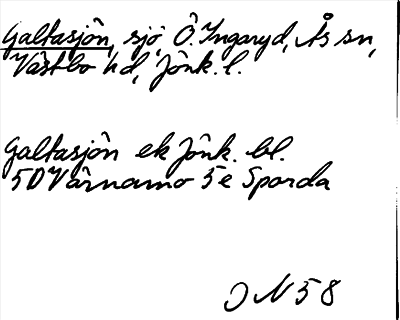 Galtasjön, sjö, Ö. Ingaryd, Ås sn,
Västbo hd, Jönk. l.
Galtasjön ek Jönk. bl.
5D Värnamo 5e Sporda
ON 58